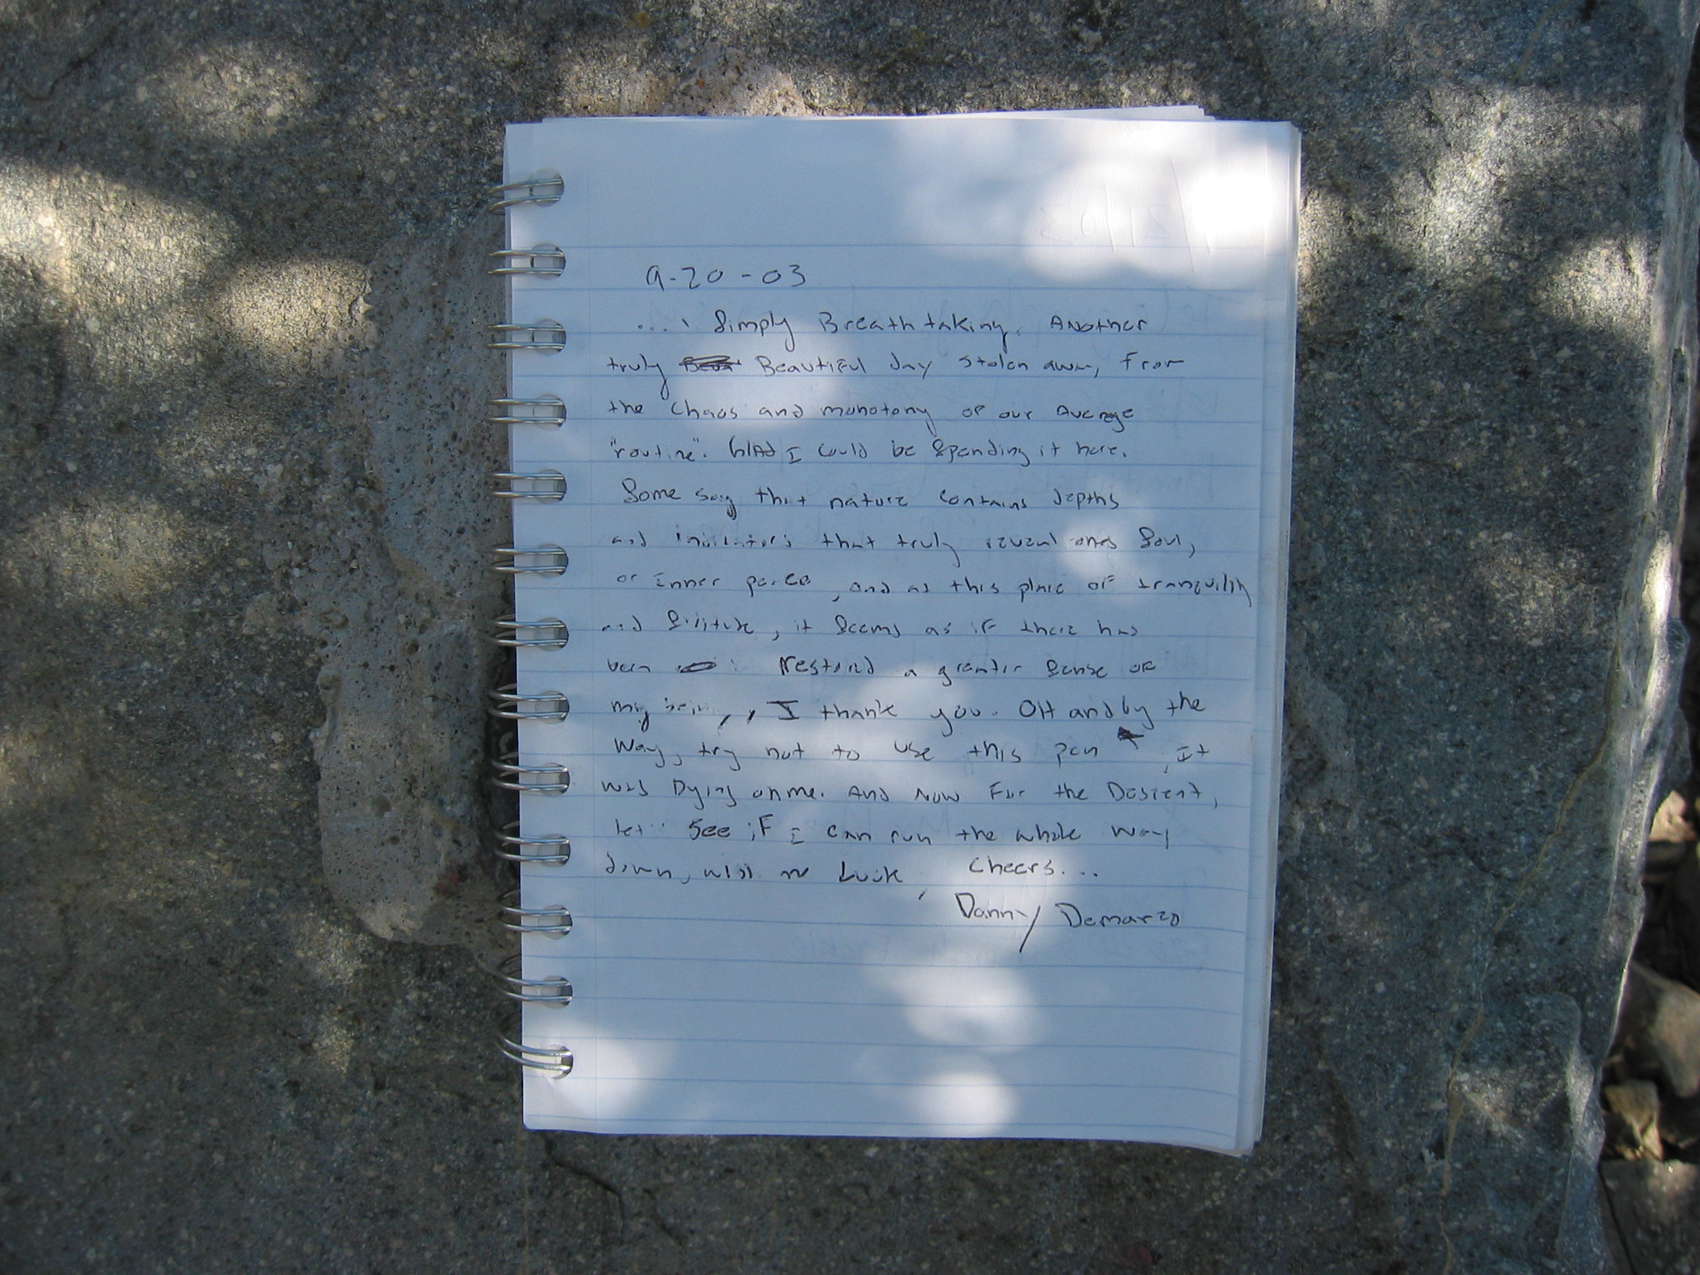 9-20-03
.... Simply Breath taking. Another
truly Beautiful day stolen away from
the chaos and monotony of our average
"routine". Glad I could be spending it here.
Some say that nature contains depths
and that truly reveal ones soul,
or inner , and as this place of tranquility
and , it seems as if there has
been restored a greater sense of
my being, I thank you. OH and by the
way, try not to use this pen, it
was Dying on me. And now For the Descent,
let's see iF I can run the whole way
down, wish me Luck, Cheers...
Danny Demarzo